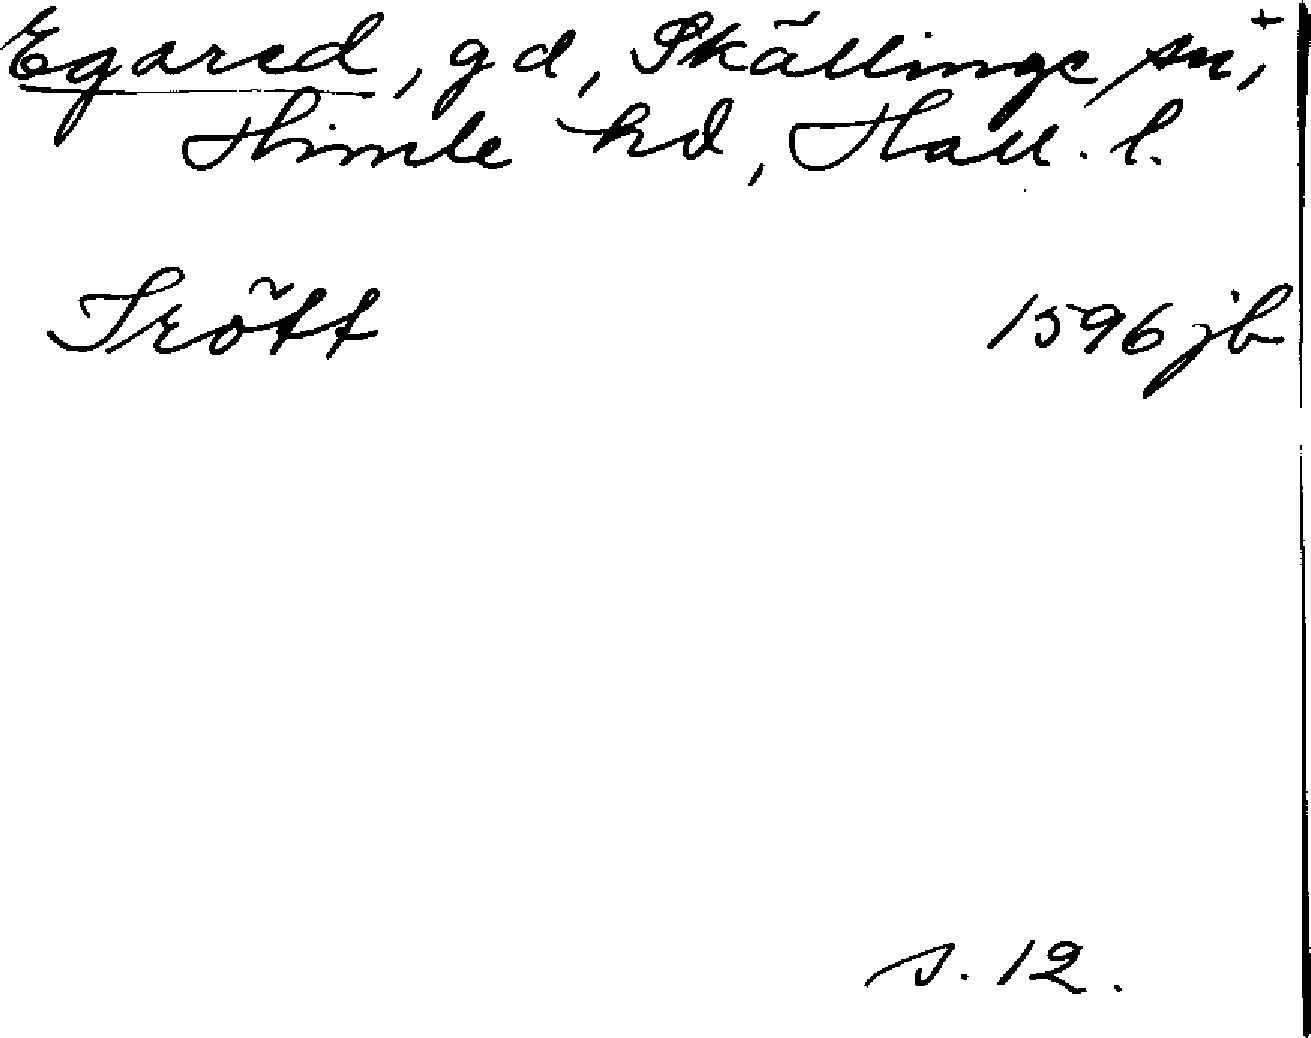 Egared, gd, Skällinge sn, +
Himle hd, Hall. l.
Trött 1596 jb
s. 12.